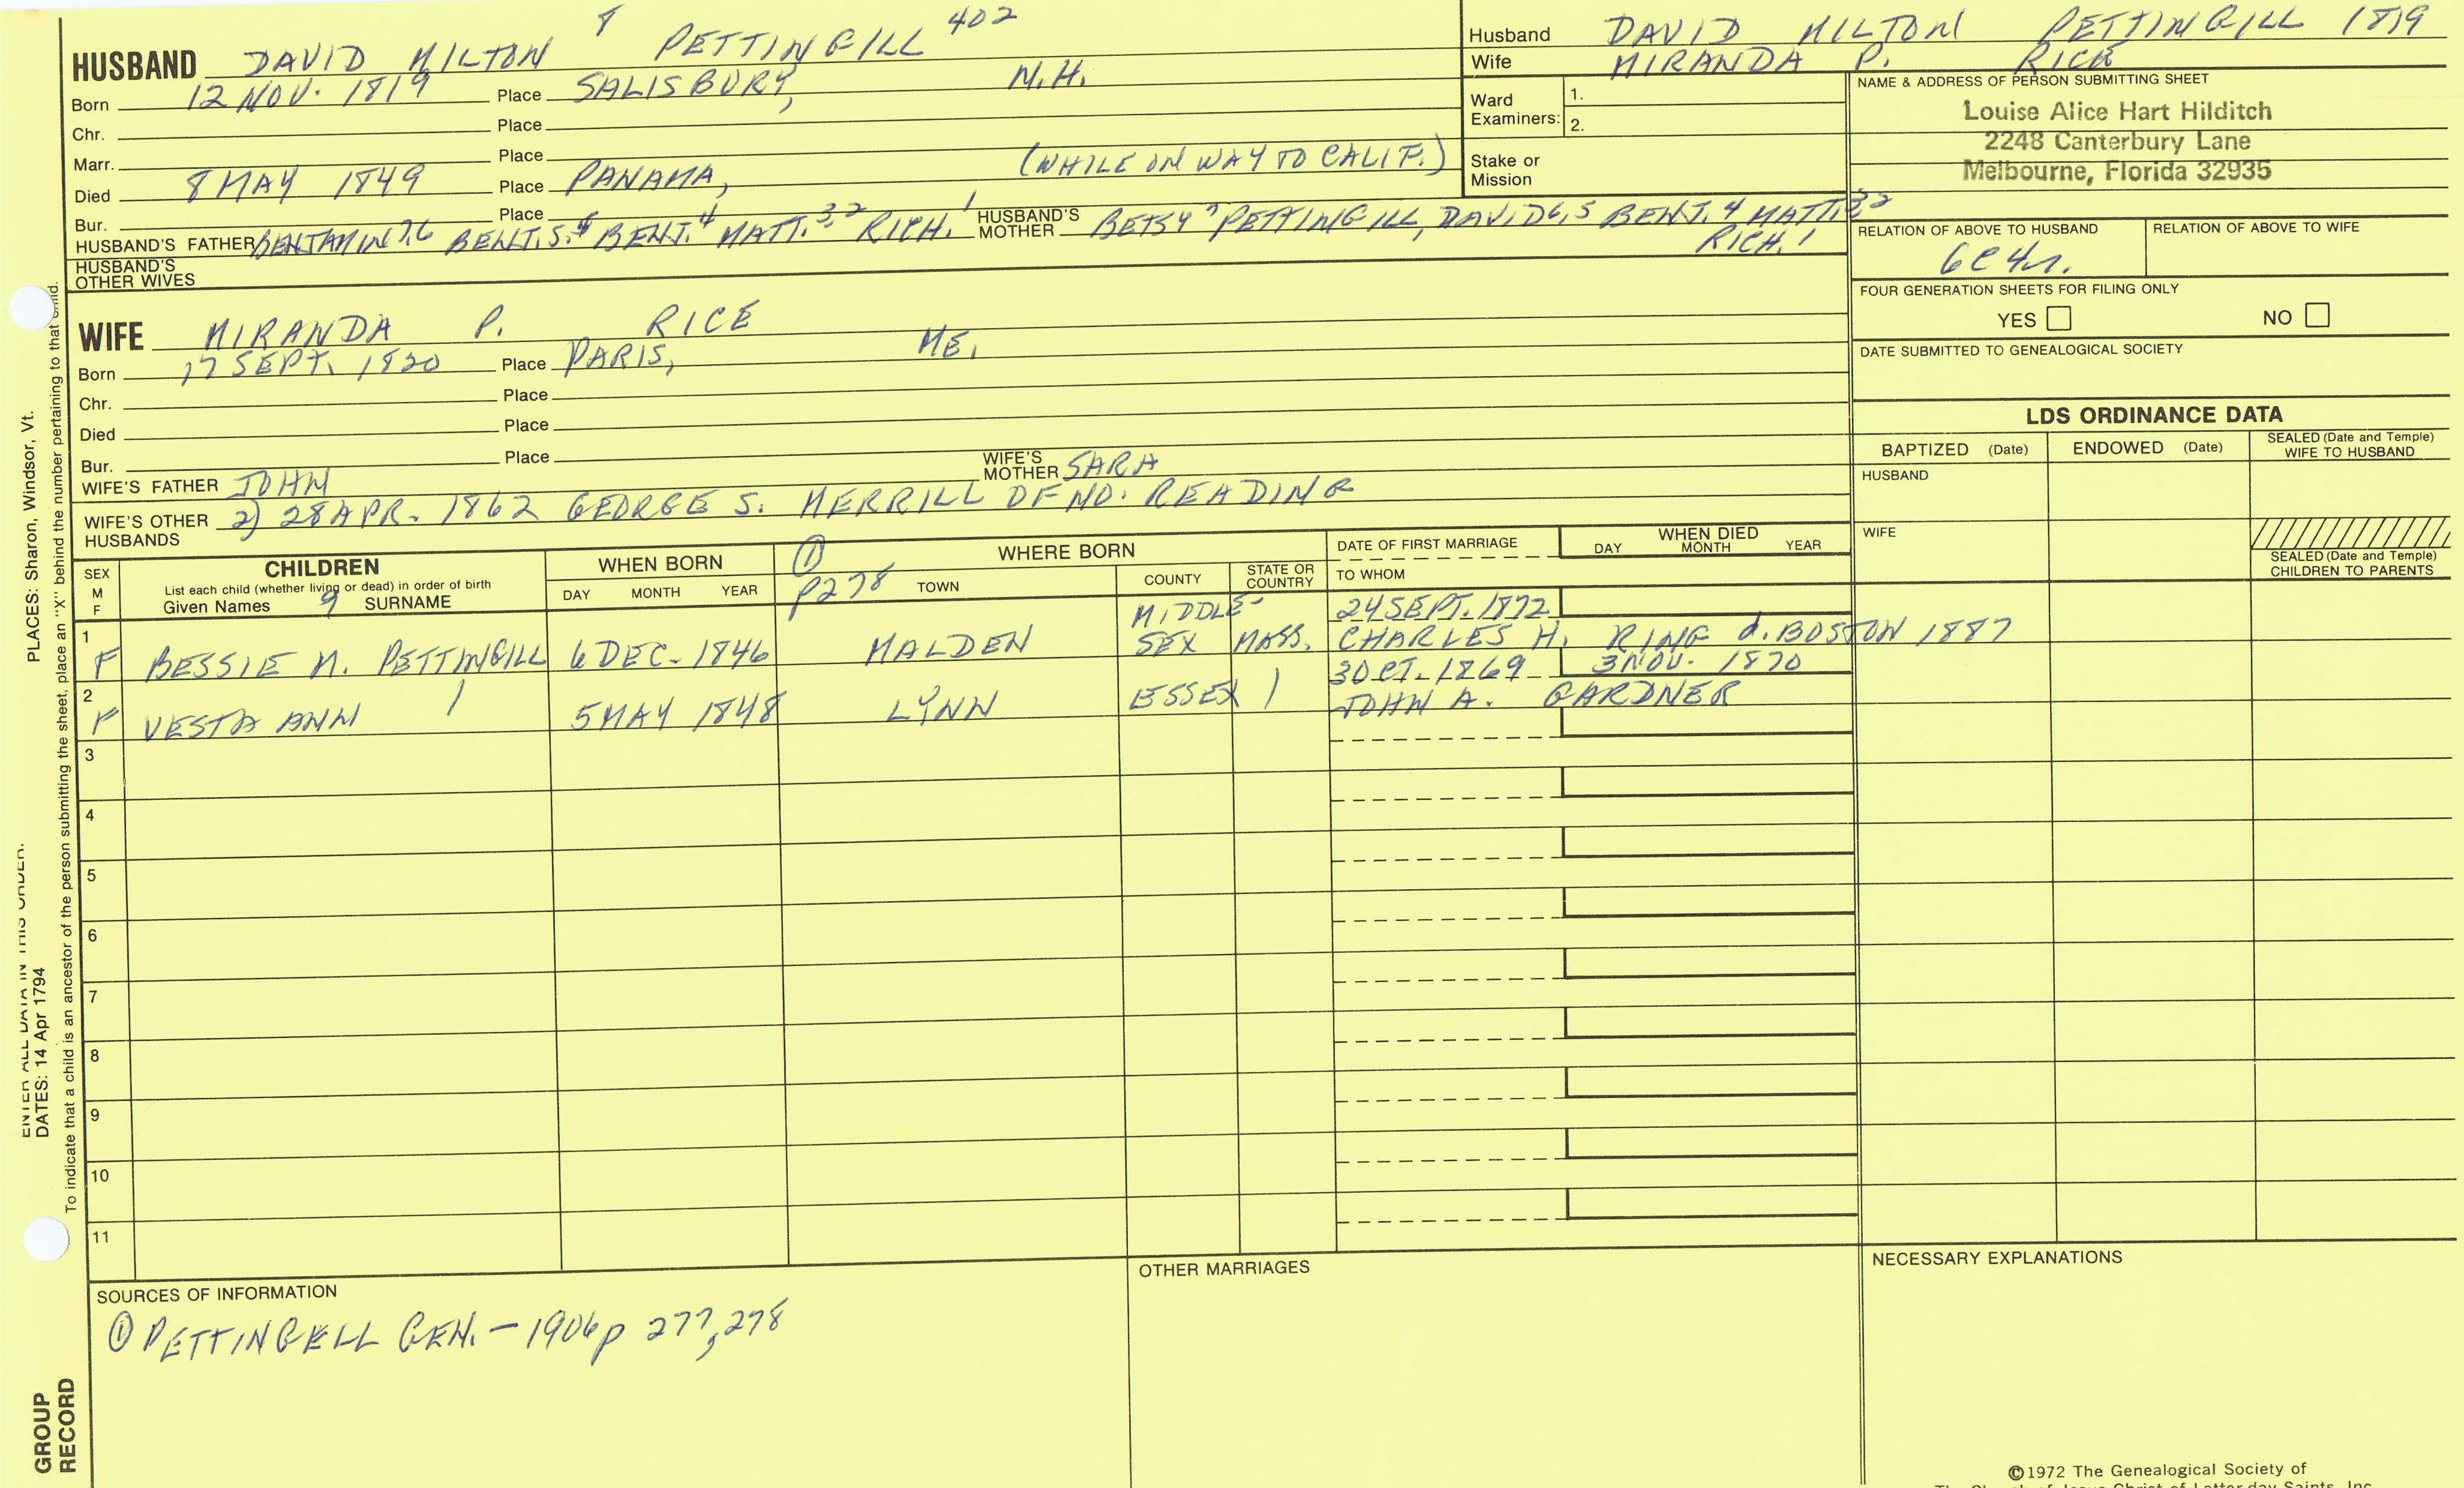 HUSBAND DAVID MILTON 8 PETTINGILL 402
Born 12 NOV. 1819 Place SALISBURY, N.H.
Chr. Place
Marr. Place
Died 8 MAY 1849 Place PANAMA, (WHILE ON WAY TO CALIF.)
Bur. Place
HUSBAND'S FATHER BENJAMIN 7,6 BENJ. 5 BENJ. 4 MATT. 3,2 RICH. 1 HUSBAND'S MOTHER BETSY 7 PETTINGILL, DAVID 6,5 BENJ. 4 MATT. 3,2
RICH. 1
HUSBAND'S OTHER WIVES
WIFE MIRANDA P. RICE
Born 17 SEPT. 1820 Place PARIS, ME.
Chr. Place
Died Place
Bur. Place
WIFE'S FATHER JOHN WIFE'S MOTHER SARA
WIFE'S OTHER HUSBANDS 2) 28 APR. 1862 GEORGE S. MERRILL OF NO. READING
Husband DAVID MILTON PETTINGILL 1819
Wife MIRANDA P. RICE
Ward Examiners: 1.
2.
Stake or Mission
NAME & ADDRESS OF PERSON SUBMITTING SHEET
Louise Alice Hart Hilditch
2248 Canterbury Lane
Melbourne, Florida 32935
RELATION OF ABOVE TO HUSBAND RELATION OF ABOVE TO WIFE
6C4r.
FOUR GENERATION SHEETS FOR FILING ONLY
YES NO
DATE SUBMITTED TO GENEALOGICAL SOCIETY
LDS ORDINANCE DATA
BAPTIZED (Date) ENDOWED (Date) SEALED (Date and Temple) WIFE TO HUSBAND
HUSBAND
WIFE
SEALED (Date and Temple) CHILDREN TO PARENTS
SEX M F
CHILDREN
List each child (whether living or dead) in order of birth
Given Names 9 SURNAME
WHEN BORN
DAY MONTH YEAR
① P278
WHERE BORN
TOWN COUNTY STATE OR COUNTRY
DATE OF FIRST MARRIAGE
TO WHOM
WHEN DIED
DAY MONTH YEAR
1 F BESSIE M. PETTINGILL 6 DEC. 1846 MALDEN MIDDLE-SEX MASS. 24 SEPT. 1872
CHARLES H. RING d. BOSTON 1887
2 F VESTA ANN 5 MAY 1848 LYNN ESSEX 3 OCT. 1869 3 NOV. 1870
JOHN A. GARDNER
3
4
5
6
7
8
9
10
11
SOURCES OF INFORMATION
① PETTINGELL GEN. - 1906 p 277, 278
OTHER MARRIAGES
NECESSARY EXPLANATIONS
©1972 The Genealogical Society of
The Church of Jesus Christ of Latter-day Saints, Inc.
PLACES: Sharon, Windsor, Vt.
To indicate that a child is an ancestor of the person submitting the sheet, place an "X" behind the number pertaining to that child.
ENTER ALL DATA IN THIS ORDER:
DATES: 14 Apr 1794
GROUP RECORD